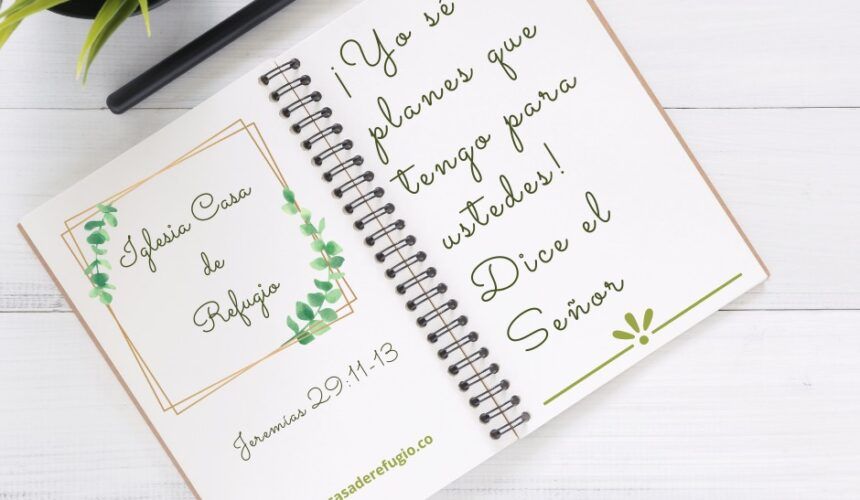 Iglesia Casa
de
Refugio
Jeremías 29:11-13
casaderefugio.co
¡Yo sé
planes que
tengo para
ustedes!
Dice el
Señor